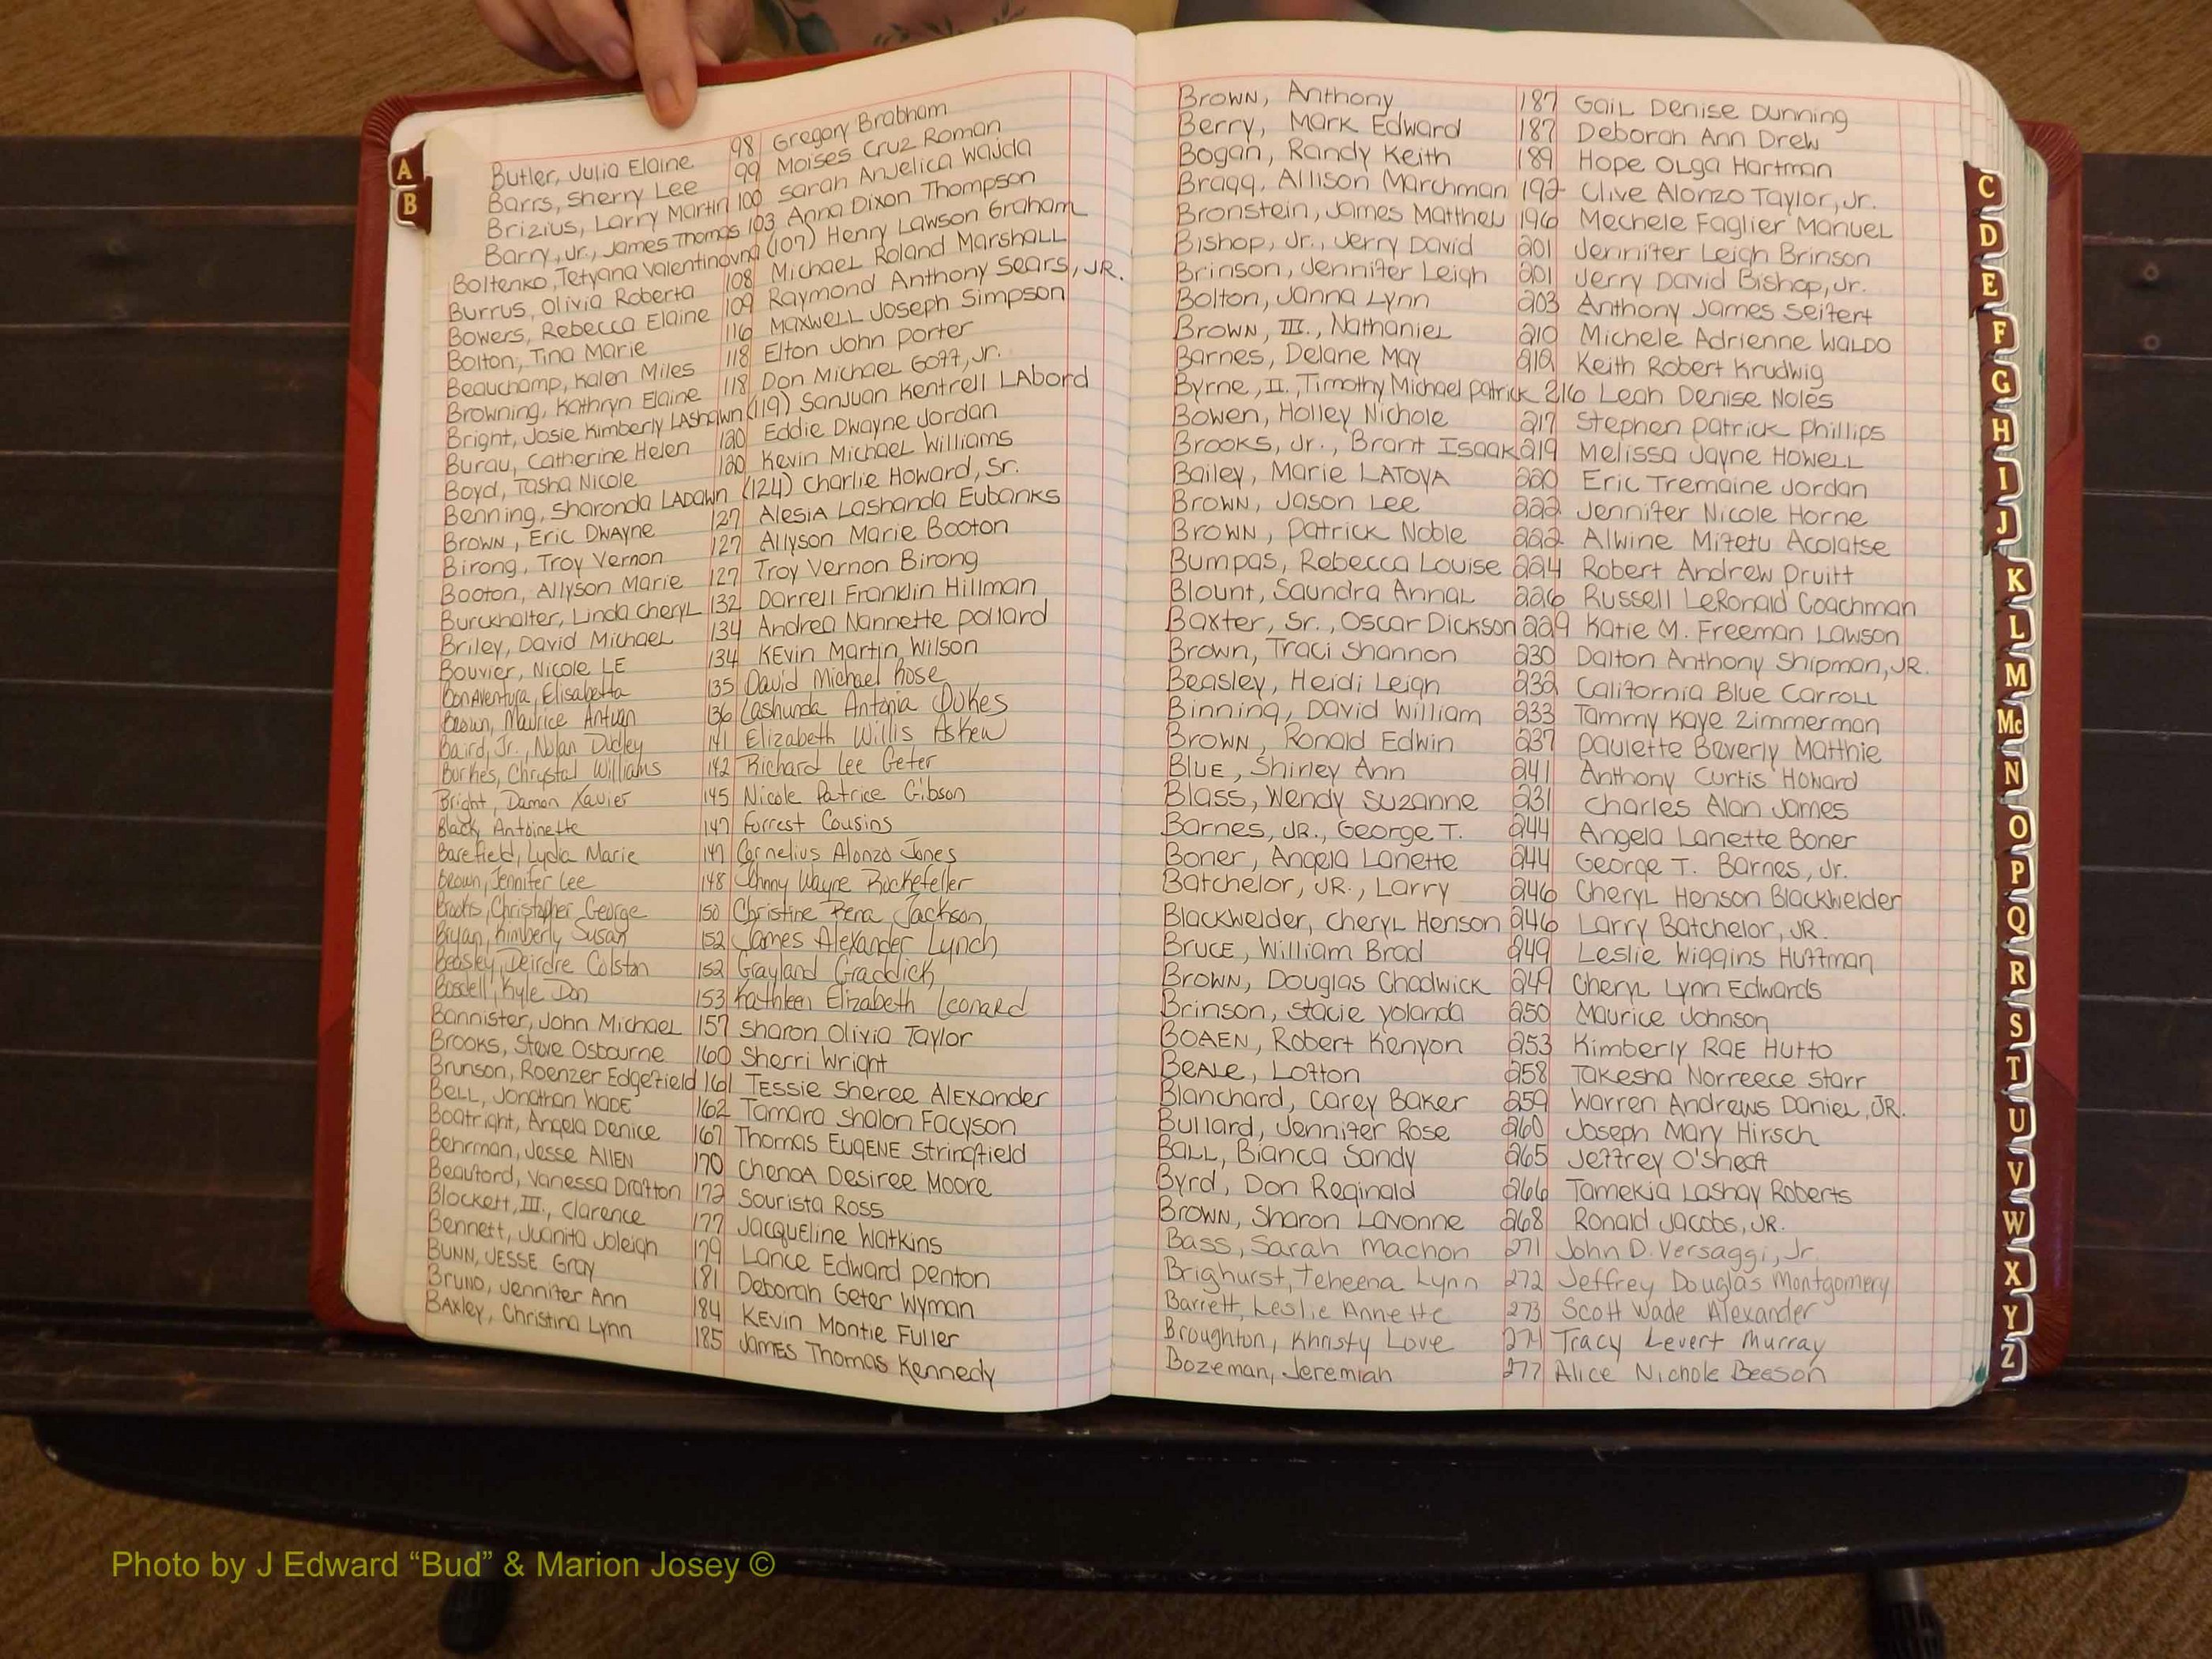 A
B
Butler, Julia Elaine 98 Gregory Brabham
Barrs, Sherry Lee 99 Moises Cruz Roman
Brizius, Larry Martin 100 Sarah Anjelica Wajda
Barry, Jr., James Thomas 103 Anna Dixon Thompson
Boltenko, Tetyana Valentinovna (107) Henry Lawson Graham
Burrus, Olivia Roberta 108 Michael Roland Marshall
Bowers, Rebecca Elaine 109 Raymond Anthony Sears, JR.
Bolton, Tina Marie 116 Maxwell Joseph Simpson
Beauchamp, Kalen Miles 118 Elton John Porter
Browning, Kathryn Elaine 118 Don Michael Goff, Jr.
Bright, Josie Kimberly LAShawn (119) SanJuan Kentrell LAbord
Burau, Catherine Helen 120 Eddie Dwayne Jordan
Boyd, Tasha Nicole 120 Kevin Michael Williams
Benning, Sharonda LADawn (124) Charlie Howard, Sr.
Brown, Eric DWAyne 127 AlesiA Lashanda Eubanks
Birong, Troy Vernon 127 Allyson Marie Booton
Booton, Allyson Marie 127 Troy Vernon Birong
Burckhalter, Linda Cheryl 132 Darrell Franklin Hillman
Briley, David Michael 134 Andrea Nannette Pollard
Bouvier, Nicole LE 134 KEvin Martin Wilson
BonAventura, Elisabetta 135 David Michael Rose
Brown, Maurice Antwan 136 Lashunda Antonia Dukes
Baird, Jr., Nolan Dudley 141 Elizabeth Willis Askew
Burkes, Chrystal Williams 142 Richard Lee Geter
Bright, Damon Xavier 145 Nicole Patrice Gibson
Black, Antoinette 147 Forrest Cousins
Barefield, Lydia Marie 147 Cornelius Alonzo Jones
Brown, Jennifer Lee 148 Johnny Wayne Rockefeller
Brooks, Christopher George 150 Christine Rena Jackson
Bryan, Kimberly Susan 152 James Alexander Lynch
Beasley, Deirdre Colston 152 Grayland Graddick
Bosdell, Kyle Don 153 Kathleen Elizabeth Leonard
Bannister, John Michael 157 Sharon Olivia Taylor
Brooks, Steve Osbourne 160 Sherri Wright
Brunson, Roenzer Edgefield 161 TESSie Sheree AlExander
BeLL, Jonathan WADE 162 Tamara Shalon Facyson
Boatright, Angela Denice 167 Thomas EUGENE Stringfield
Behrman, Jesse AllEN 170 ChenoA Desiree Moore
Beauford, Vanessa Drafton 172 Sourista Ross
Blockett, III., Clarence 177 Jacqueline Watkins
Bennett, Juanita Joleigh 179 Lance Edward Penton
BUNN, JESSE Gray 181 Deborah Geter Wyman
Bruno, Jennifer Ann 184 KEvin Montie Fuller
BAxley, Christina Lynn 185 JAMES Thomas Kennedy
Brown, Anthony 187 Gail Denise Dunning
Berry, Mark Edward 187 Deborah Ann Drew
Bogan, Randy Keith 189 Hope Olga Hartman
Bragg, Allison Marchman 192 Clive Alonzo Taylor, Jr.
Bronstein, James Matthew 196 Mechele Faglier Manuel
Bishop, Jr., Jerry David 201 Jennifer Leigh Brinson
Brinson, Jennifer Leigh 201 Jerry David Bishop, Jr.
Bolton, Janna Lynn 203 Anthony James Seifert
Brown, III., Nathaniel 210 Michele Adrienne WALDO
Barnes, Delane May 212 Keith Robert Krudwig
Byrne, II., Timothy Michael Patrick 216 Leah Denise Noles
Bowen, Holley Nichole 217 Stephen Patrick Phillips
Brooks, Jr., Brant Isaak 219 Melissa Jayne Howell
Bailey, Marie LATOYA 220 Eric Tremaine Jordan
Brown, Jason Lee 222 Jennifer Nicole Horne
Brown, Patrick Noble 222 Alwine Mifetu Acolatse
Bumpas, Rebecca Louise 224 Robert Andrew Pruitt
Blount, Saundra Annal 226 Russell LeRonald Coachman
Baxter, Sr., Oscar Dickson 229 Katie M. Freeman Lawson
Brown, Traci Shannon 230 Dalton Anthony Shipman, JR.
Beasley, Heidi Leigh 232 California Blue Carroll
Binning, David William 233 Tammy Kaye Zimmerman
Brown, Ronald Edwin 237 Paulette Beverly Matthie
Blue, Shirley Ann 241 Anthony Curtis Howard
Blass, Wendy Suzanne 231 Charles Alan James
Barnes, JR., George T. 244 Angela Lanette Boner
Boner, Angela Lanette 244 George T. Barnes, Jr.
Batchelor, JR., Larry 246 Cheryl Henson Blackwelder
Blackwelder, Cheryl Henson 246 Larry Batchelor, JR.
Bruce, William Brad 249 Leslie Wiggins Huffman
Brown, Douglas Chadwick 249 Cheryl Lynn Edwards
Brinson, Stacie Yolanda 250 Maurice Johnson
BOAEN, Robert Kenyon 253 Kimberly RAE Hutto
BeALe, Lofton 258 Takesha Norreece Starr
Blanchard, Carey Baker 259 Warren Andrews Daniel, JR.
Bullard, Jennifer Rose 260 Joseph Mary Hirsch
BALL, Bianca Sandy 265 Jeffrey O'Sheat
Byrd, Don Reginald 266 Tamekia Lashay Roberts
Brown, Sharon Lavonne 268 Ronald Jacobs, JR.
Bass, Sarah Machon 271 John D. Versaggi, Jr.
Brighurst, Teheena Lynn 272 Jeffrey Douglas Montgomery
Barrett, Leslie Annette 273 Scott Wade Alexander
Broughton, Khristy Love 274 Tracy Levert Murray
Bozeman, Jeremiah 277 Alice Nichole Beeson
C
D
E
F
G
H
I
J
K
L
M
Mc
N
O
P
Q
R
S
T
U
V
W
X
Y
Z
Photo by J Edward “Bud” & Marion Josey ©